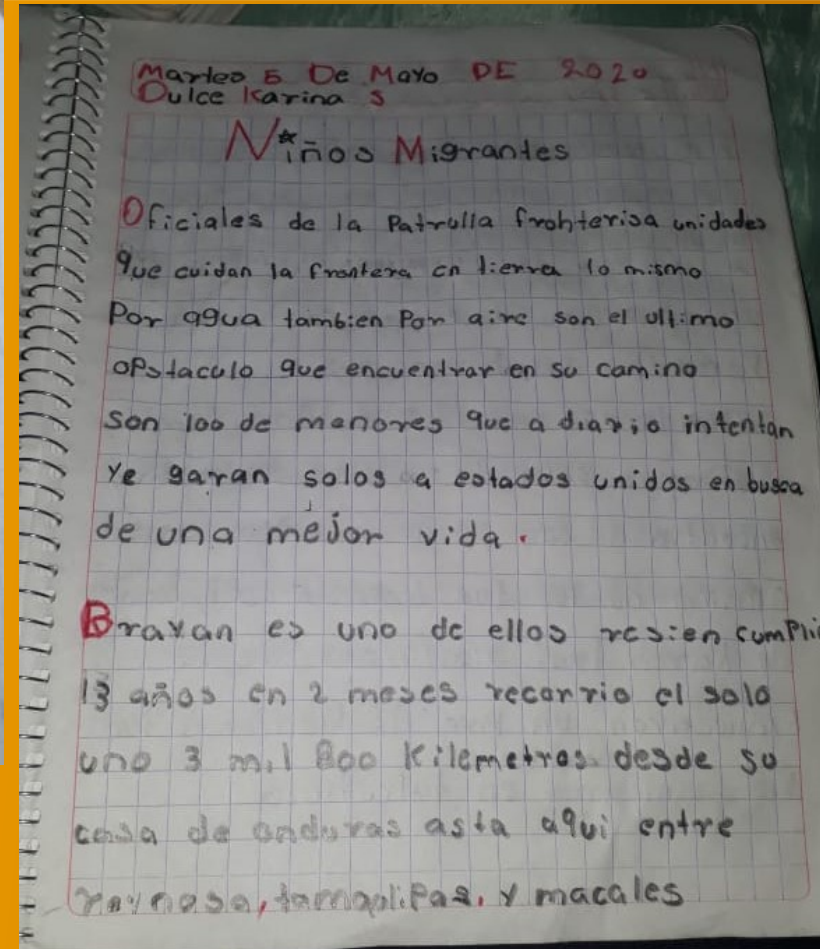 Martes 5 De Mayo DE 2020
Dulce Karina S
Niños Migrantes
Oficiales de la Patrulla fronterisa unidades
que cuidan la frontera en tierra lo mismo
Por agua tambien Por aire son el ultimo
opstaculo que encuentrar en su camino
son 100 de menores que a diario intentan
ye garan solos a estados unidos en busca
de una mejor vida.
Brayan es uno de ellos resien cumplio
13 años en 2 meses recorrio el solo
uno 3 mil 800 Kilemetros desde su
casa de onduras asta aqui entre
reynosa, tamaplipas, y macales